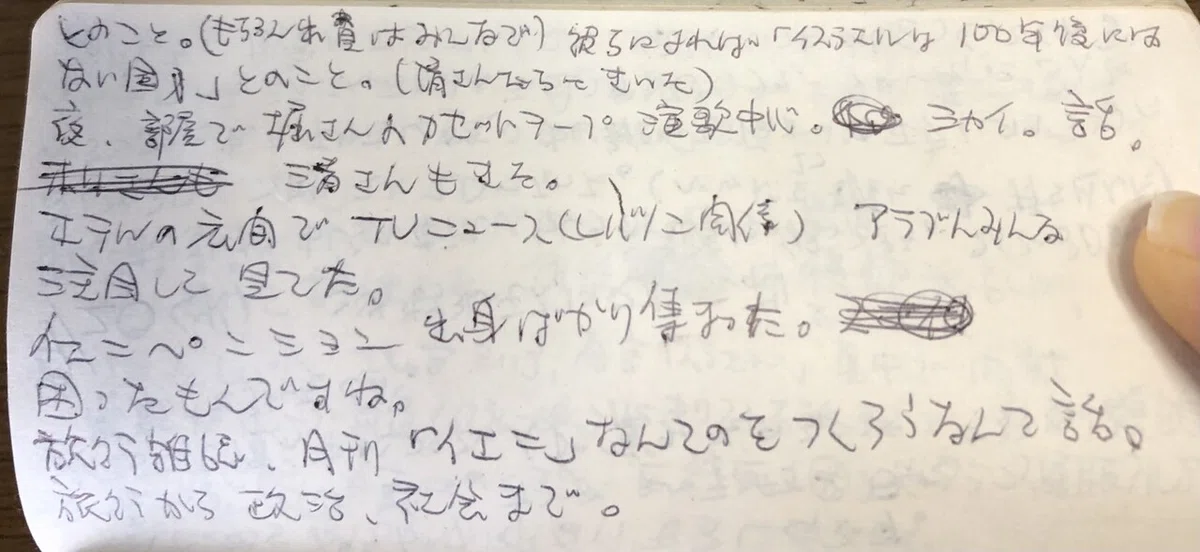 とのこと。(もちろん出費はみんなで) 彼らによれば「イスラエルは100年後には
ない国す」とのこと。(済さんたちできいた)
夜、部屋で堀さんのカセットテープ 演歌中心。 ミカイ。話。
三済さんもきそ。
の元首で TVニュース(レバノン関係) アラブ人みんな
注目して見てた。
イエニペンション 出身ばかり集まった。
困ったもんですね。
旅行雑誌、月刊「イエニ」なんてのをつくろうなんて話。
旅行から政治、社会まで。